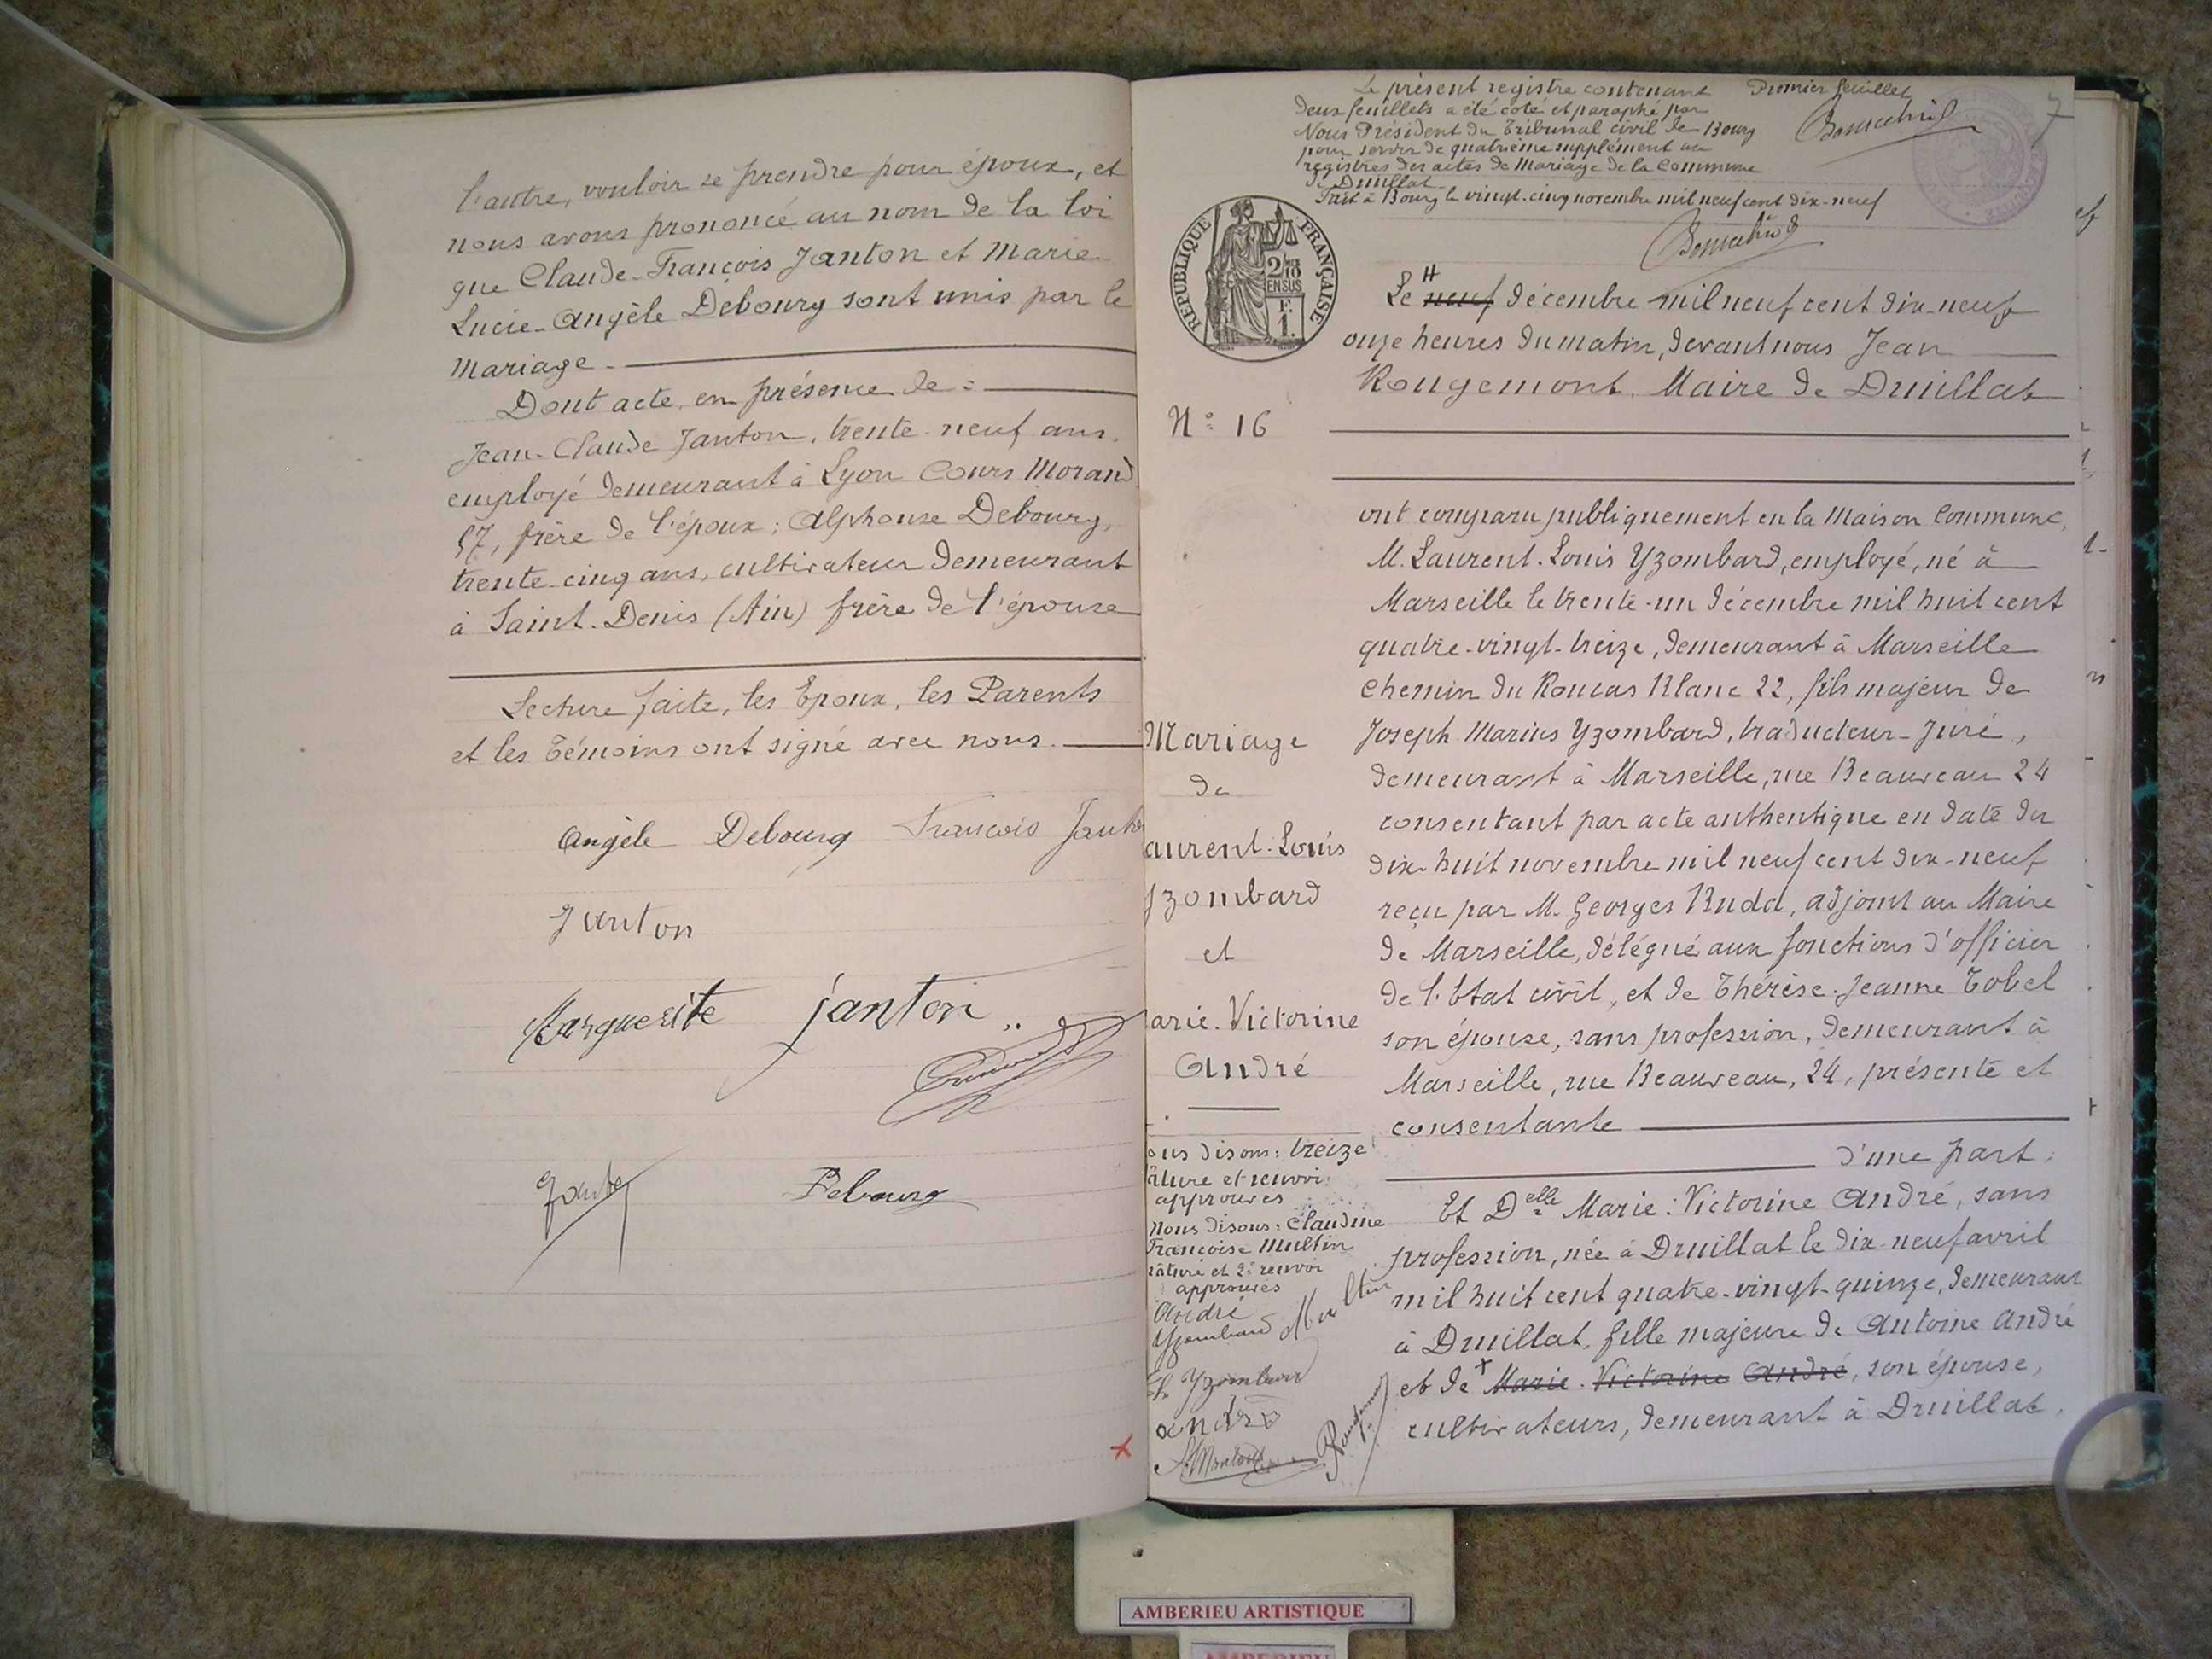 l'autre, vouloir se prendre pour époux, et
nous avons prononcé au nom de la loi
que Claude-François Janton et Marie-
Lucie-Angèle Debourg sont unis par le
mariage.
Dont acte, en présence de :
Jean-Claude Janton, trente-neuf ans,
employé demeurant à Lyon Cours Morand
57, frère de l'époux ; Alphonse Debourg,
trente-cinq ans, cultivateur demeurant
à Saint-Denis (Ain) frère de l'épouse
Lecture faite, les Epoux, les Parents
et les Témoins ont signé avec nous.
Angèle Debourg François Janton
Janton
Marguerite janton
Debourg
Le présent registre contenant
deux feuillets a été coté et paraphé par
Nous Président du Tribunal civil de Bourg
pour servir de quatrième supplément au
registres des actes de Mariage de la Commune
de Druillat
Fait à Bourg le vingt-cinq novembre mil neuf cent dix-neuf
Premier feuillet
7
RÉPUBLIQUE FRANÇAISE
N° 16
Le neuf décembre mil neuf cent dix-neuf
onze heures du matin, devant nous Jean
Rougemont. Maire de Druillat
ont comparu publiquement en la Maison Commune,
M. Laurent-Louis Yzombard, employé, né à
Marseille le trente-un décembre mil huit cent
quatre-vingt-treize, demeurant à Marseille
chemin du Roucas Blanc 22, fils majeur de
Joseph Marius Yzombard, traducteur-Juré,
demeurant à Marseille, rue Beauveau 24
consentant par acte authentique en date du
dix-huit novembre mil neuf cent dix-neuf
reçu par M. Georges Budd, adjoint au Maire
de Marseille, délégué aux fonctions d'officier
de l'Etat civil, et de Thérèse-Jeanne Tobel
son épouse, sans profession, demeurant à
Marseille, rue Beauveau, 24, présente et
consentante
d'une part.
Et Delle Marie-Victorine André, sans
profession, née à Druillat le dix-neuf avril
mil huit cent quatre-vingt-quinze, demeurant
à Druillat, fille majeure de Antoine André
et de + Marie-Victorine André, son épouse,
cultivateurs, demeurant à Druillat,
Mariage
de
aurent-Louis
Yzombard
et
arie-Victorine
André
ous disons : treize
rature et renvoi
approuvés
Nous disons : Claudine
Françoise Multin
raturé et 2e renvoi
approuvés
André
Yzombard Multin
Yzombard
andré
Rougemont
AMBERIEU ARTISTIQUE
AMBERIEU